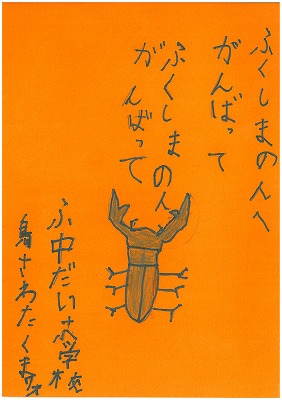 ふくしまの人へ
がんばって
ふくしまの人
がんばって
ふ中だい学校
さわたくま